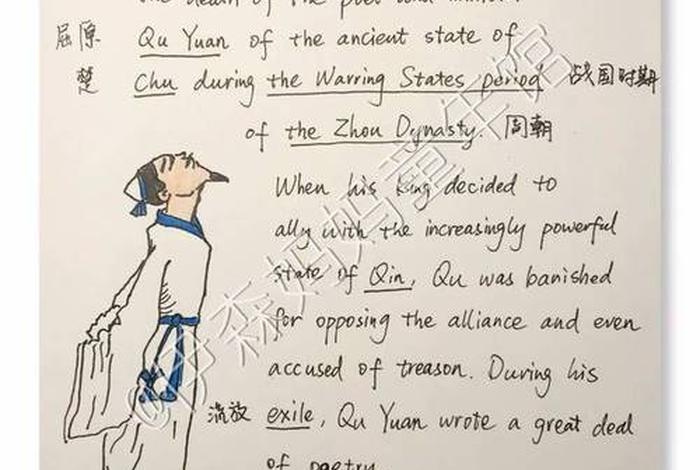 the death of the poet and
屈原 Qu Yuan of the ancient state of
楚 Chu during the Warring States period 战国时期
of the Zhou Dynasty. 周朝
When his king decided to
ally with the increasingly powerful
state of Qin, Qu was banished
for opposing the alliance and even
accused of treason. During his
流放 exile, Qu Yuan wrote a great deal
of poetry
@伊森妈妈童年馆